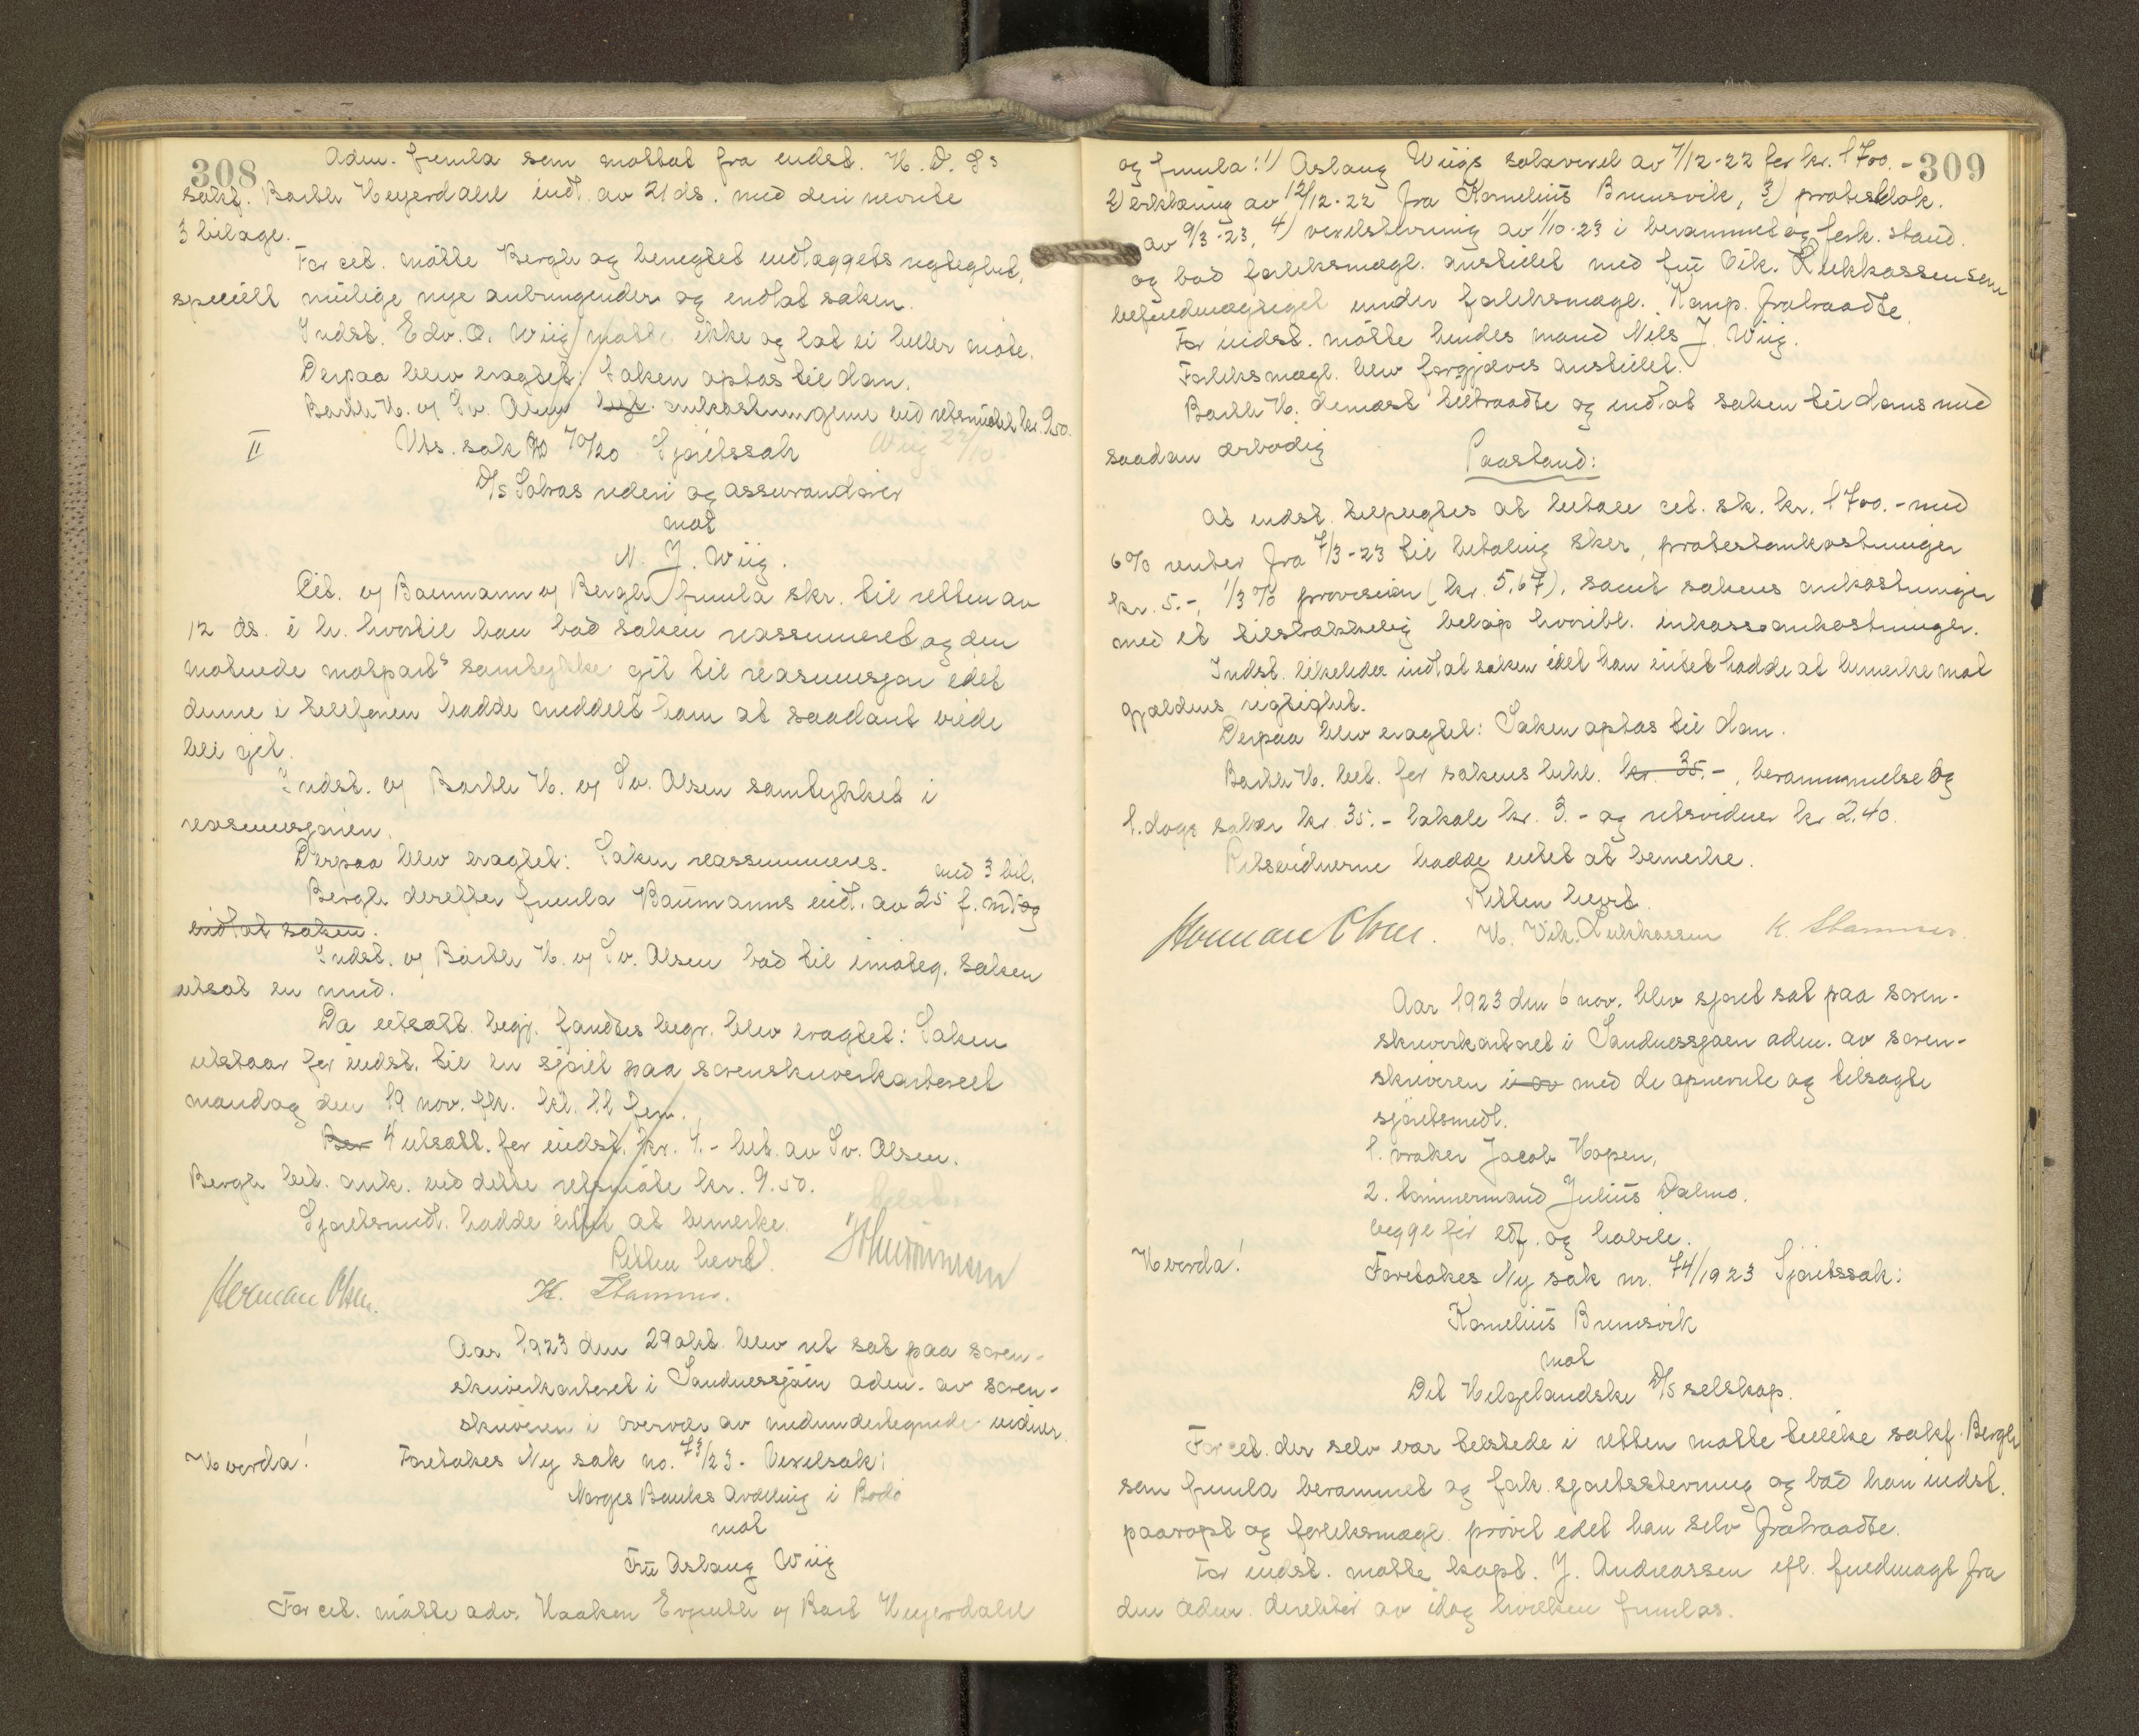 308
Adm. freml. som mottat fra indst. H. D. Ss
sakf. Barth Heyerdahl indl. av 21 ds. med deri nevnte
3 bilage.
For cit. mötte Bergh og benegtet indlæggets rigtighet,
specielt mulige nye anbringender og indlot saken.
Indst. Edv. O. Wiig mötte ikke og lot ei heller möte.
Derpaa blev eragtet: Saken optas til dom.
Barth H. og Sv. Olsen omkostningene ved retsmötet kr. 9.50.
II Uts. sak no 70/20 Sjöretssak Wiig 22/10
D/s Sobras rederi og assurandörer
mot
N. J. Wiig.
Cit. v/ Baumann v/ Bergh fremla skr. til retten av
12 ds. i h. hvortil han bad saken reassumeret og den
motuede motparts samtykke git til reasumsjon idet
denne i telefonen hadde meddelt ham at saadant vilde
bli git.
Indst. v/ Barth H. v/ Sv. Olsen samtykket i
reasumsjonen.
Derpaa blev eragtet: Saken reassummeres. med 3 bil.
Bergh derefter fremla Baumanns indl. av 25 f. md og
indlot saken.
Indst. v/ Barth H. v/ Sv. Olsen bad til imöteg. saken
utsat en mnd.
Da utsætt. begj. fandtes begr. blev eragtet: Saken
utstaar for indst. til en sjöret paa sorenskriverkontoret
mandag den 19 nov. fk. kl. 11 form.
Ber 4 utsætt. for indst. kr. 4.- bet. av Sv. Olsen.
Bergh bet. omk. ved dette retsmöte kr. 9.50.
Sjöretsmedl. hadde intet at bemerke.
Retten hevet.
Herman Olsen. K. Stamnes.
Aar 1923 den 29 okt. blev ret sat paa soren-
skriverkontoret i Sandnessjöen adm. av soren-
skriveren i overvær av medundertegnede vidner.
Hvorda! Foretokes Ny sak no. 73/23. Vexelsak:
Norges Banks Avdeling i Bodö
mot
Fru Aslaug Wiig
For cit. mötte adv. Haaken Evjenth v/ Bart Heyerdahl
309
og fremla: 1) Aslaug Wiigs solavexel av 7/12-22 for kr. 1700.-
2) erklæring av 12/12-22 fra Kornelius Brunsvik, 3) protestdok.
av 9/3-23, 4) vexelstevning av 1/10-23 i berammet og fork. stand.
og bad forliksmægl. anstillet med fru Vik. Lukkassen som
befuldmægtiget under forliksmægl. Komp. fratraadte.
For indst. mötte hendes mand Nils J. Wiig.
Forliksmægl. blev forgjæves anstillet.
Barth H. dernæst tiltraadte og indlot saken til doms med
saadan ærbödig Paastand:
At indst. tilpligtes at betale cit. sk. kr. 1700.- med
6% renter fra 7/3-23 til betaling sker, protestomkostninger
kr. 5.-, 1/3% provision (kr. 5,67), samt sakens omkostninger
med et tilstrækkelig belöp hvoribl. inkassoomkostninger.
Indst. likeledes indlot saken idet han intet hadde at bemerke mot
gjældens rigtighet.
Derpaa blev eragtet: Saken optas til dom.
Barth H. bet. for sakens beh. kr. 35.-, berammelse og
1. dags salær kr. 35.- lokale kr. 3.- og retsvidner kr 2.40.
Retsvidnerne hadde intet at bemerke.
Retten hevet.
Herman Olsen. H. Vik. Lukkassen K. Stamnes.
Aar 1923 den 6 nov. blev sjöret sat paa soren-
skriverkontoret i Sandnessjöen adm. av soren-
skriveren i ov med de opnevnte og tilsagte
sjöretsmedl.
1. vraker Jacob Hopen,
2. tömmermand Julius Dalmo.
begge för edf. og habile.
Hvorda! Foretokes Ny sak nr. 74/1923 Sjöretssak:
Kornelius Brunsvik
mot
Det Helgelandske D/s selskap.
For cit. der selv var tilstede i retten mötte tillike sakf. Bergh
som fremla berammet og fork. sjöretsstevning og bad han indst.
paaropt og forliksmægl. prövet idet han selv fratraadte.
For indst. mötte kapt. J. Andreassen efl. fuldmagt fra
den adm. direktör av idag hvilken fremlas.